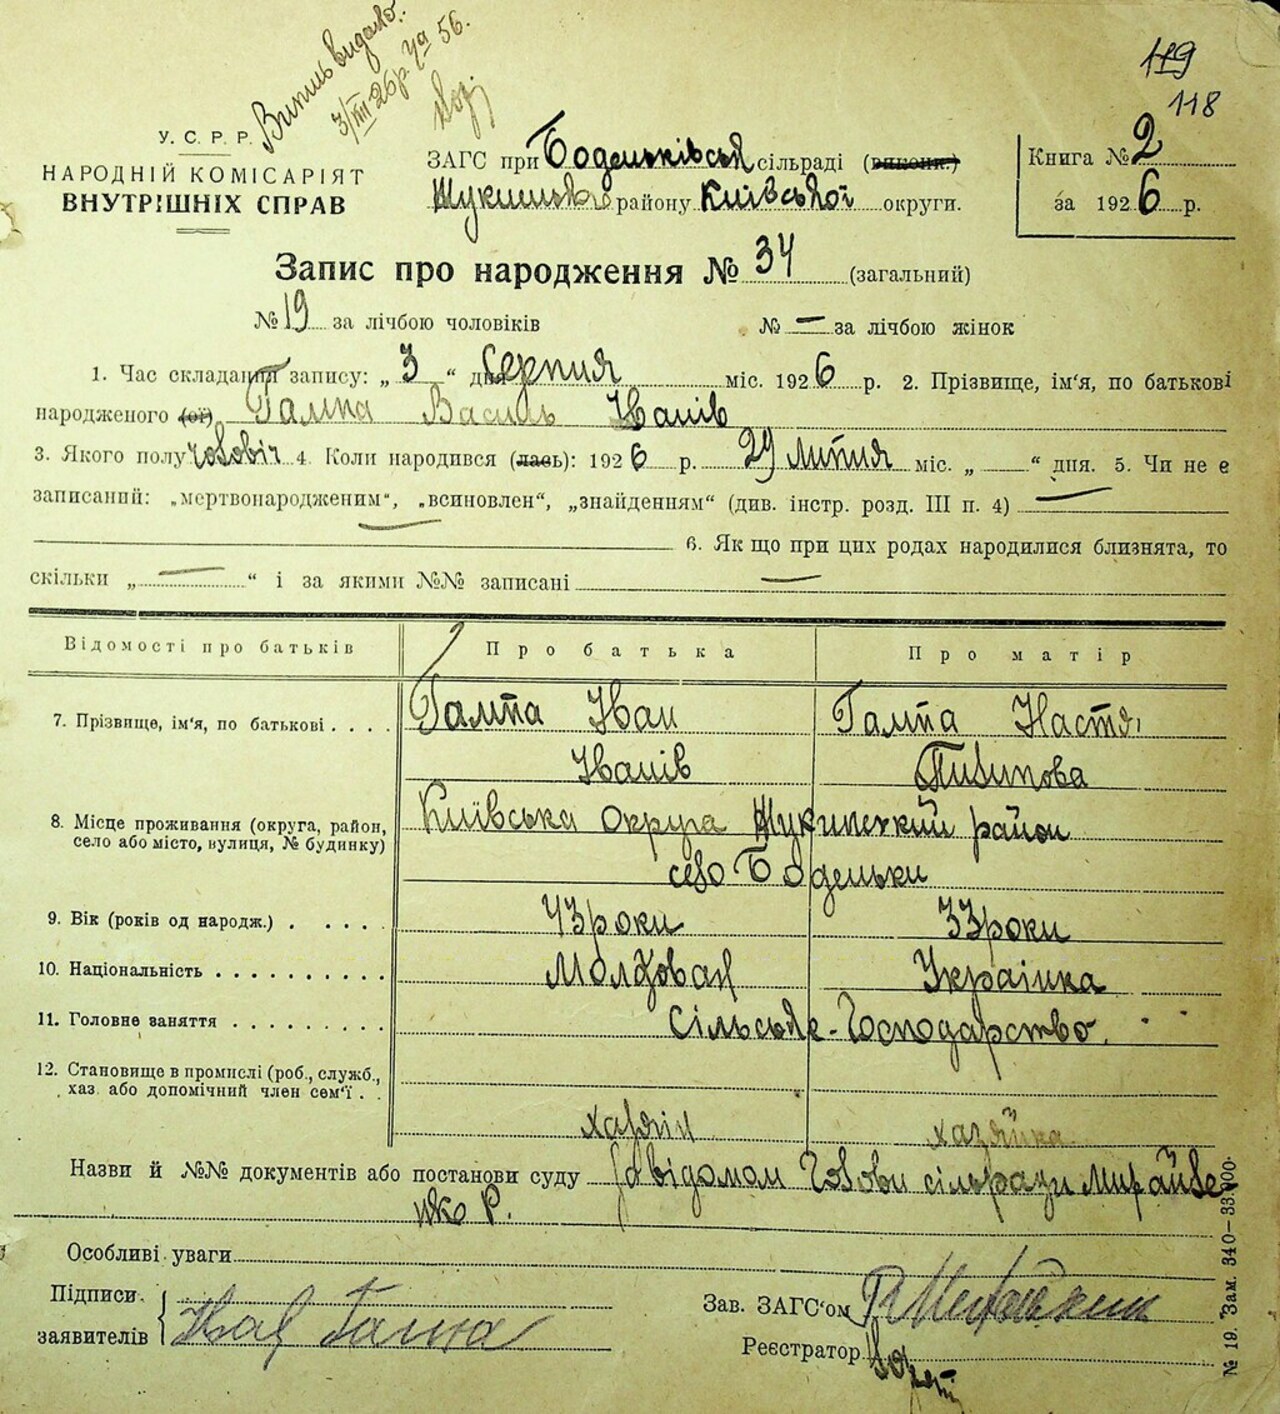 Випись видано.
3/VIII-26р. за 56.
119
118
У. С. Р. Р.
НАРОДНІЙ КОМІСАРІЯТ
ВНУТРІШНІХ СПРАВ
ЗАГС при Боденьківськ сільраді (виконк.)
району Київської округи.
Книга № 2
за 1926 р.
Запис про народження № 34 (загальний)
№ 19 за лічбою чоловіків № — за лічбою жінок
1. Час складання запису: „ 3 “ дня Серпня міс. 1926 р. 2. Прізвище, ім'я, по батькові
народженого (ої) Гампа Василь Іванів
3. Якого полу чоловіч 4. Коли народився (лась): 1926 р. 29 липня міс. „ — “ дня. 5. Чи не є
записаний: „мертвонародженим“, „всиновлен“, „знайденням“ (див. інстр. розд. III п. 4) —
6. Як що при цих родах народилися близнята, то
скільки „ — “ і за якими №№ записані —
Відомості про батьків Про батька Про матір
7. Прізвище, ім'я, по батькові . . . . Гампа Іван Гампа Настя
Іванів Пилипова
8. Місце проживання (округа, район, село або місто, вулиця, № будинку) Київська округа Жукинський район
село Боденьки
9. Вік (років од народж.) . . . . . 43 роки 33 роки
10. Національність . . . . . . . . . . Молдован Українка
11. Головне заняття . . . . . . . . . Сільське-Господарство.
12. Становище в промислі (роб., служб., хаз. або допомічний член сем'ї . .
хазяїн хазяйка
Назви й №№ документів або постанови суду За відомом Голови сільради
нко Р.
Особливі уваги
Підписи заявителів Іван Гампа
Зав. ЗАГС'ом
Реєстратор
№ 19. Зам. 340—33.000.